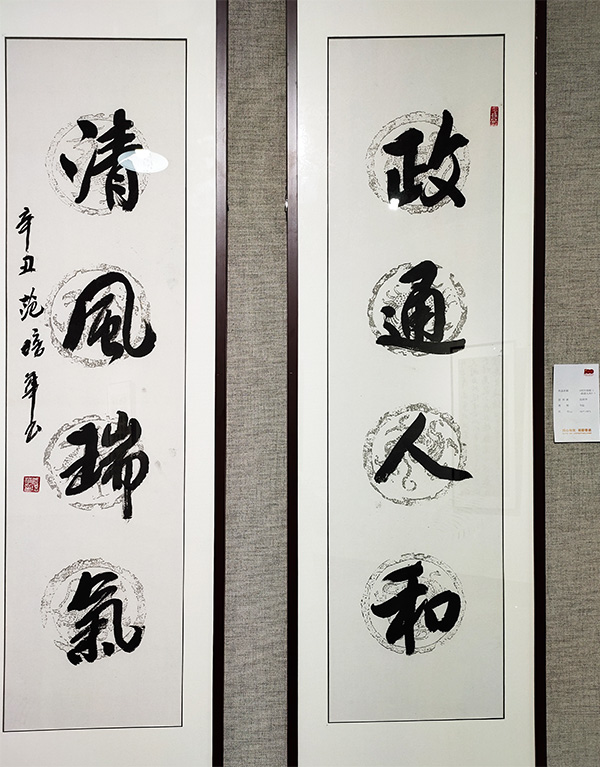 政通人和
清風瑞氣
辛丑 范培